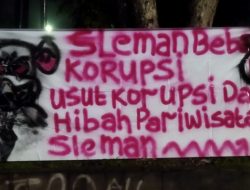 Sleman Beb
KORUPSI
USUT KORUPSI Da
HIBAH PARIWISATA
Sleman